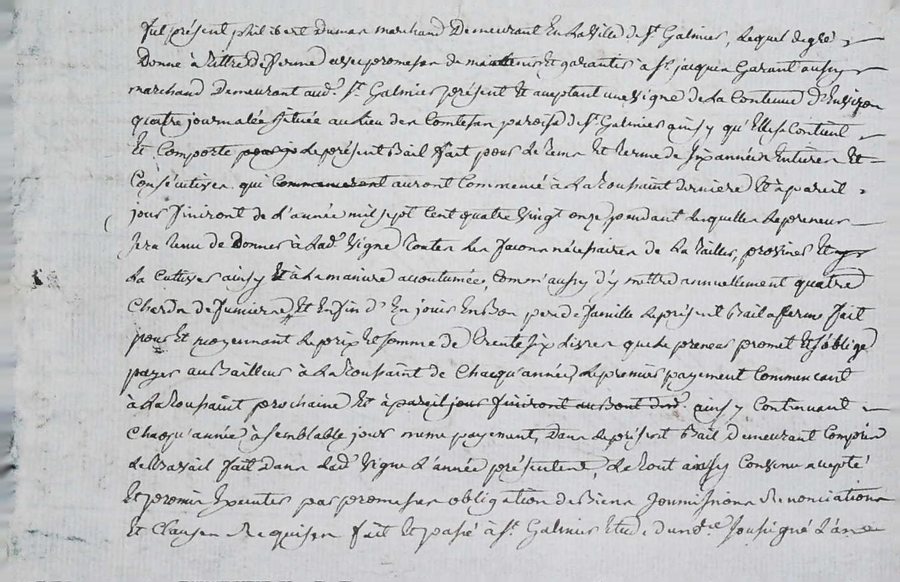 fut présent philibert Dumas marchand Demeurant En La Ville de St Galmier, Lequel de gré
Donne à tittre de fferme avec promesse de maintenir Et garantir à Sr jacques Garant aussy
marchand Demeurant aud. St Galmier présent Et aceptant une Vigne de La Contenue D'Environ
quatre journalée Située au Lieu des Comtes paroisse de St Galmier ainsy qu'Elle se Contient
Et Comporte Le présent Bail fait pour Le tems Et terme de Six années Entieres Et
Consécutives qui Commenceront auront Commencé à La toussaint derniere Et à pareil
jour finiront de L'année mil sept Cent quatre Vingt onze pendant Lesquelles Le preneur
Sera tenu de Donner à Lad. Vigne toutes Les facons nécessaires de La tailler, proviner Et
La Cultiver ainsy Et à La maniere accoutumée, Com'aussy d'y mettre annuellement quatre
Chards de fumiere Et Enfin D'En jouir En Bon pere de famille Le présent Bail a fferme fait
pour Et moyennant Le prix Et somme de trente Six Livres que Le preneur promet Et s'oblige
payer au Bailleur à La toussaint de Chacqu'année, Le premier payement Commencant
à La toussaint prochaine Et à pareil jour finiront au Bout dud. ainsy Continuant
Chacqu'année à semblable jour meme payement, Dans Le présent Bail Demeurant Compris
Le travail fait Dans Lad. Vigne L'année présente, Le tout ainsy Convenu acepté
Et promis Executer par promesses obligation de Biens Soumissions Renonciations
Et Clauses Requises fait Et passé à St Galmier Etude du ndre Soussigné L'an